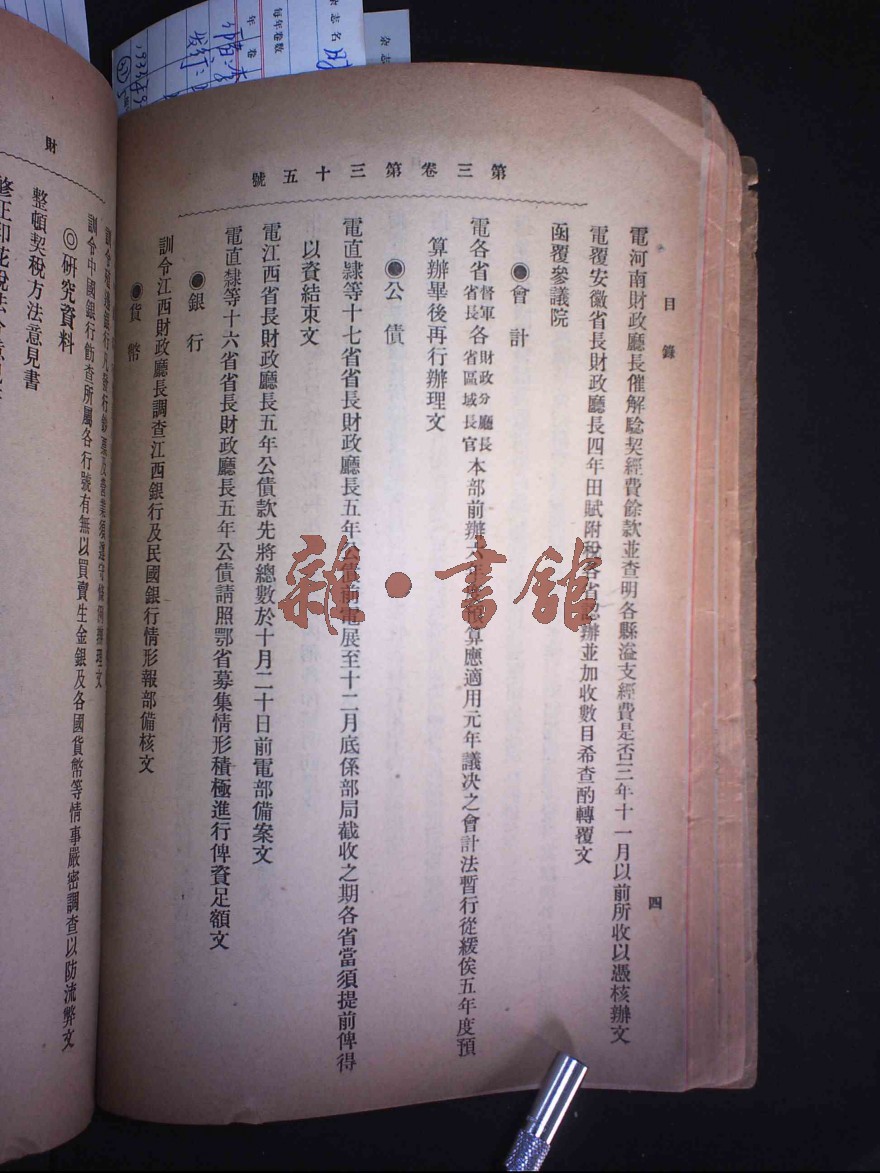 第三卷第三十五號
目錄
四
電河南財政廳長催解驗契經費餘款並查明各縣溢支經費是否三年十一月以前所收以憑核辦文
電覆安徽省長財政廳長四年田賦附稅各省認辦並加收數目希查酌轉覆文
函覆參議院
◉會計
電各省督軍省長各省區域長官財政分廳長本部前辦六年度預算應適用元年議决之會計法暫行從緩俟五年度預
算辦畢後再行辦理文
◉公債
電直隸等十七省省長財政廳長五年公債前電展至十二月底係部局截收之期各省當須提前俾得
以資結束文
電江西省長財政廳長五年公債款先將總數於十月二十日前電部備案文
電直隸等十六省省長財政廳長五年公債請照鄂省募集情形積極進行俾資足額文
◉銀行
訓令江西財政廳長調查江西銀行及民國銀行情形報部備核文
◉貨幣
訓令中國銀行飭查所屬各行號有無以買賣生金銀及各國貨幣等情事嚴密調查以防流弊文
◎研究資料
整頓契稅方法意見書
修正印花稅法
財
雜·書館
杂志名
每年卷数
年 卷